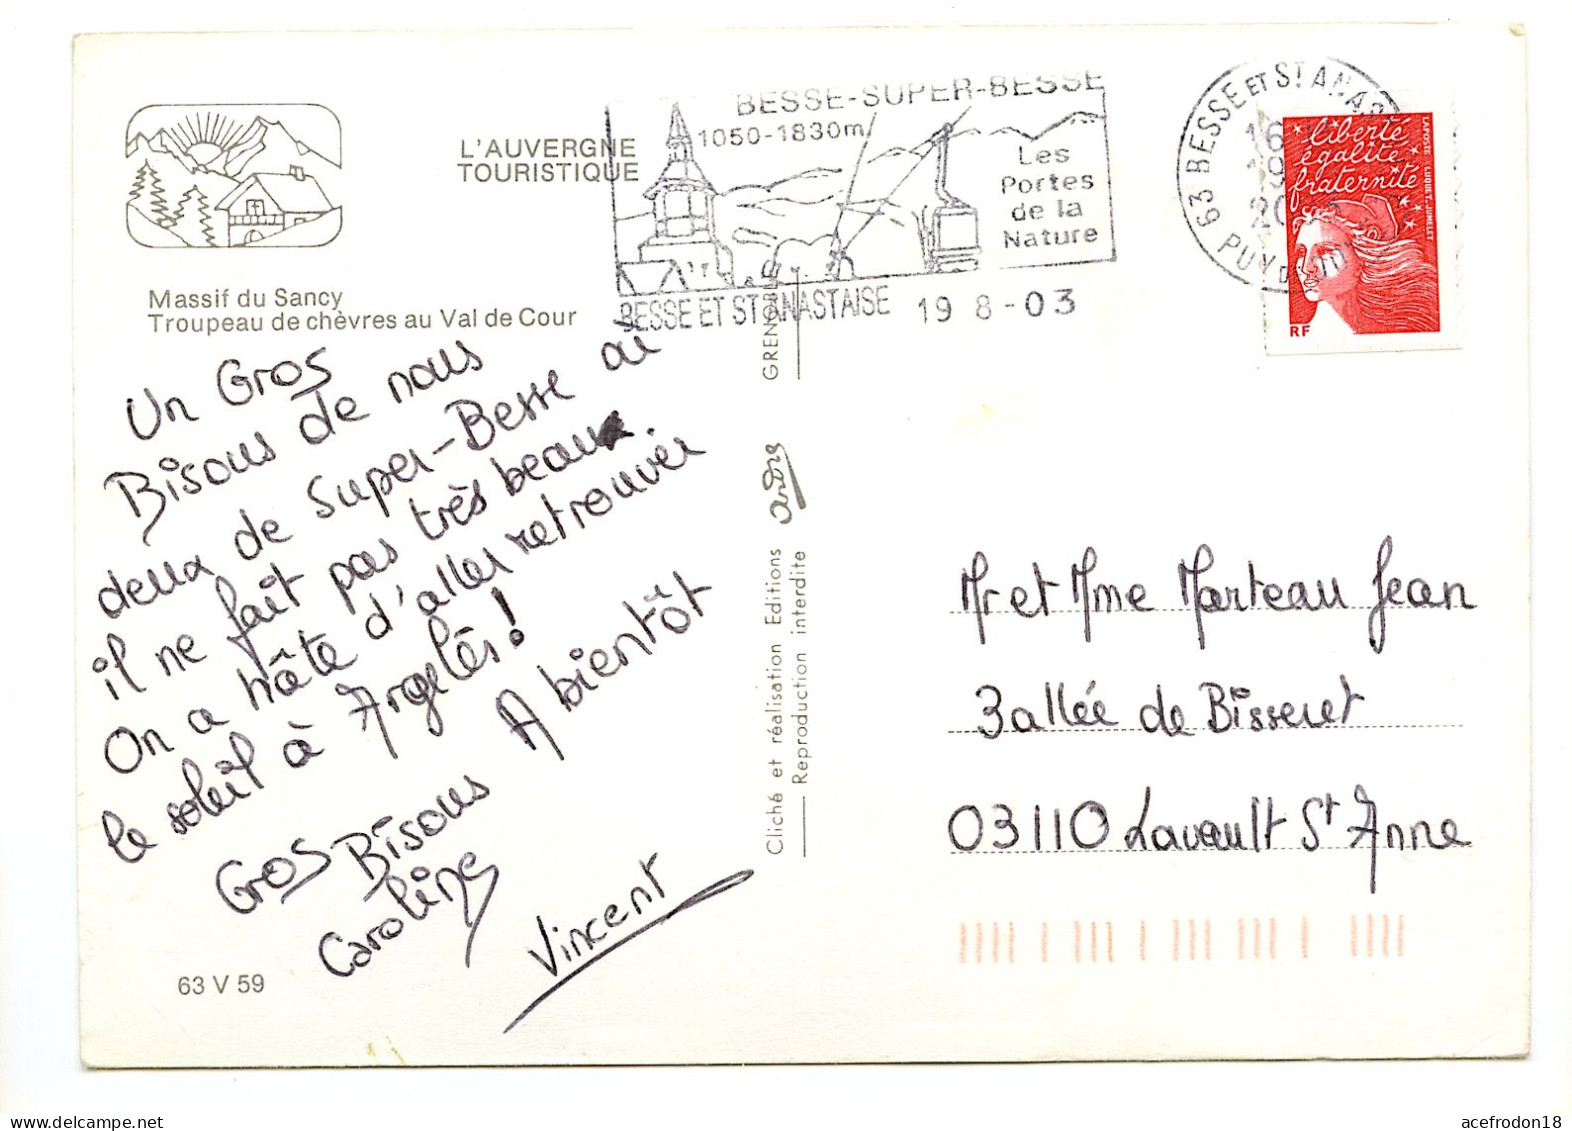 L'AUVERGNE
TOURISTIQUE
Massif du Sancy
Troupeau de chèvres au Val de Cour
BESSE-SUPER-BESSE
1050-1830m
Les
Portes
de la
Nature
BESSE ET ST ANASTAISE 19 8-03
63 BESSE ET ST ANAST
16
19
20
PUY DE
liberté
égalité
fraternité
LAPOSTE LUQUET-JUMELET
RF
Un Gros
Bisous de nous
deux de Super-Besse où
il ne fait pas très beau.
On a hâte d'aller retrouver
le soleil à Argelès!
A bientôt
Gros Bisous
Caroline
Vincent
63 V 59
GRENOBLE
André
Cliché et réalisation Editions
Reproduction interdite
Mr et Mme Marteau Jean
3 allée de Bisseret
03110 Lavault St Anne
acefrodon18